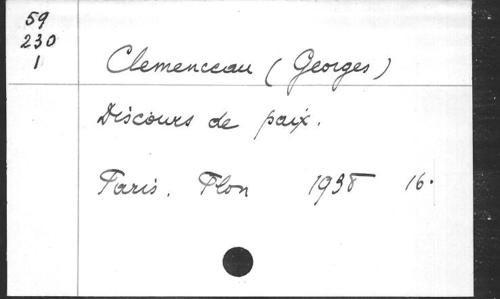 59
230
1
Clemenceau (Georges)
Discours de paix.
Paris. Plon 1938 16.